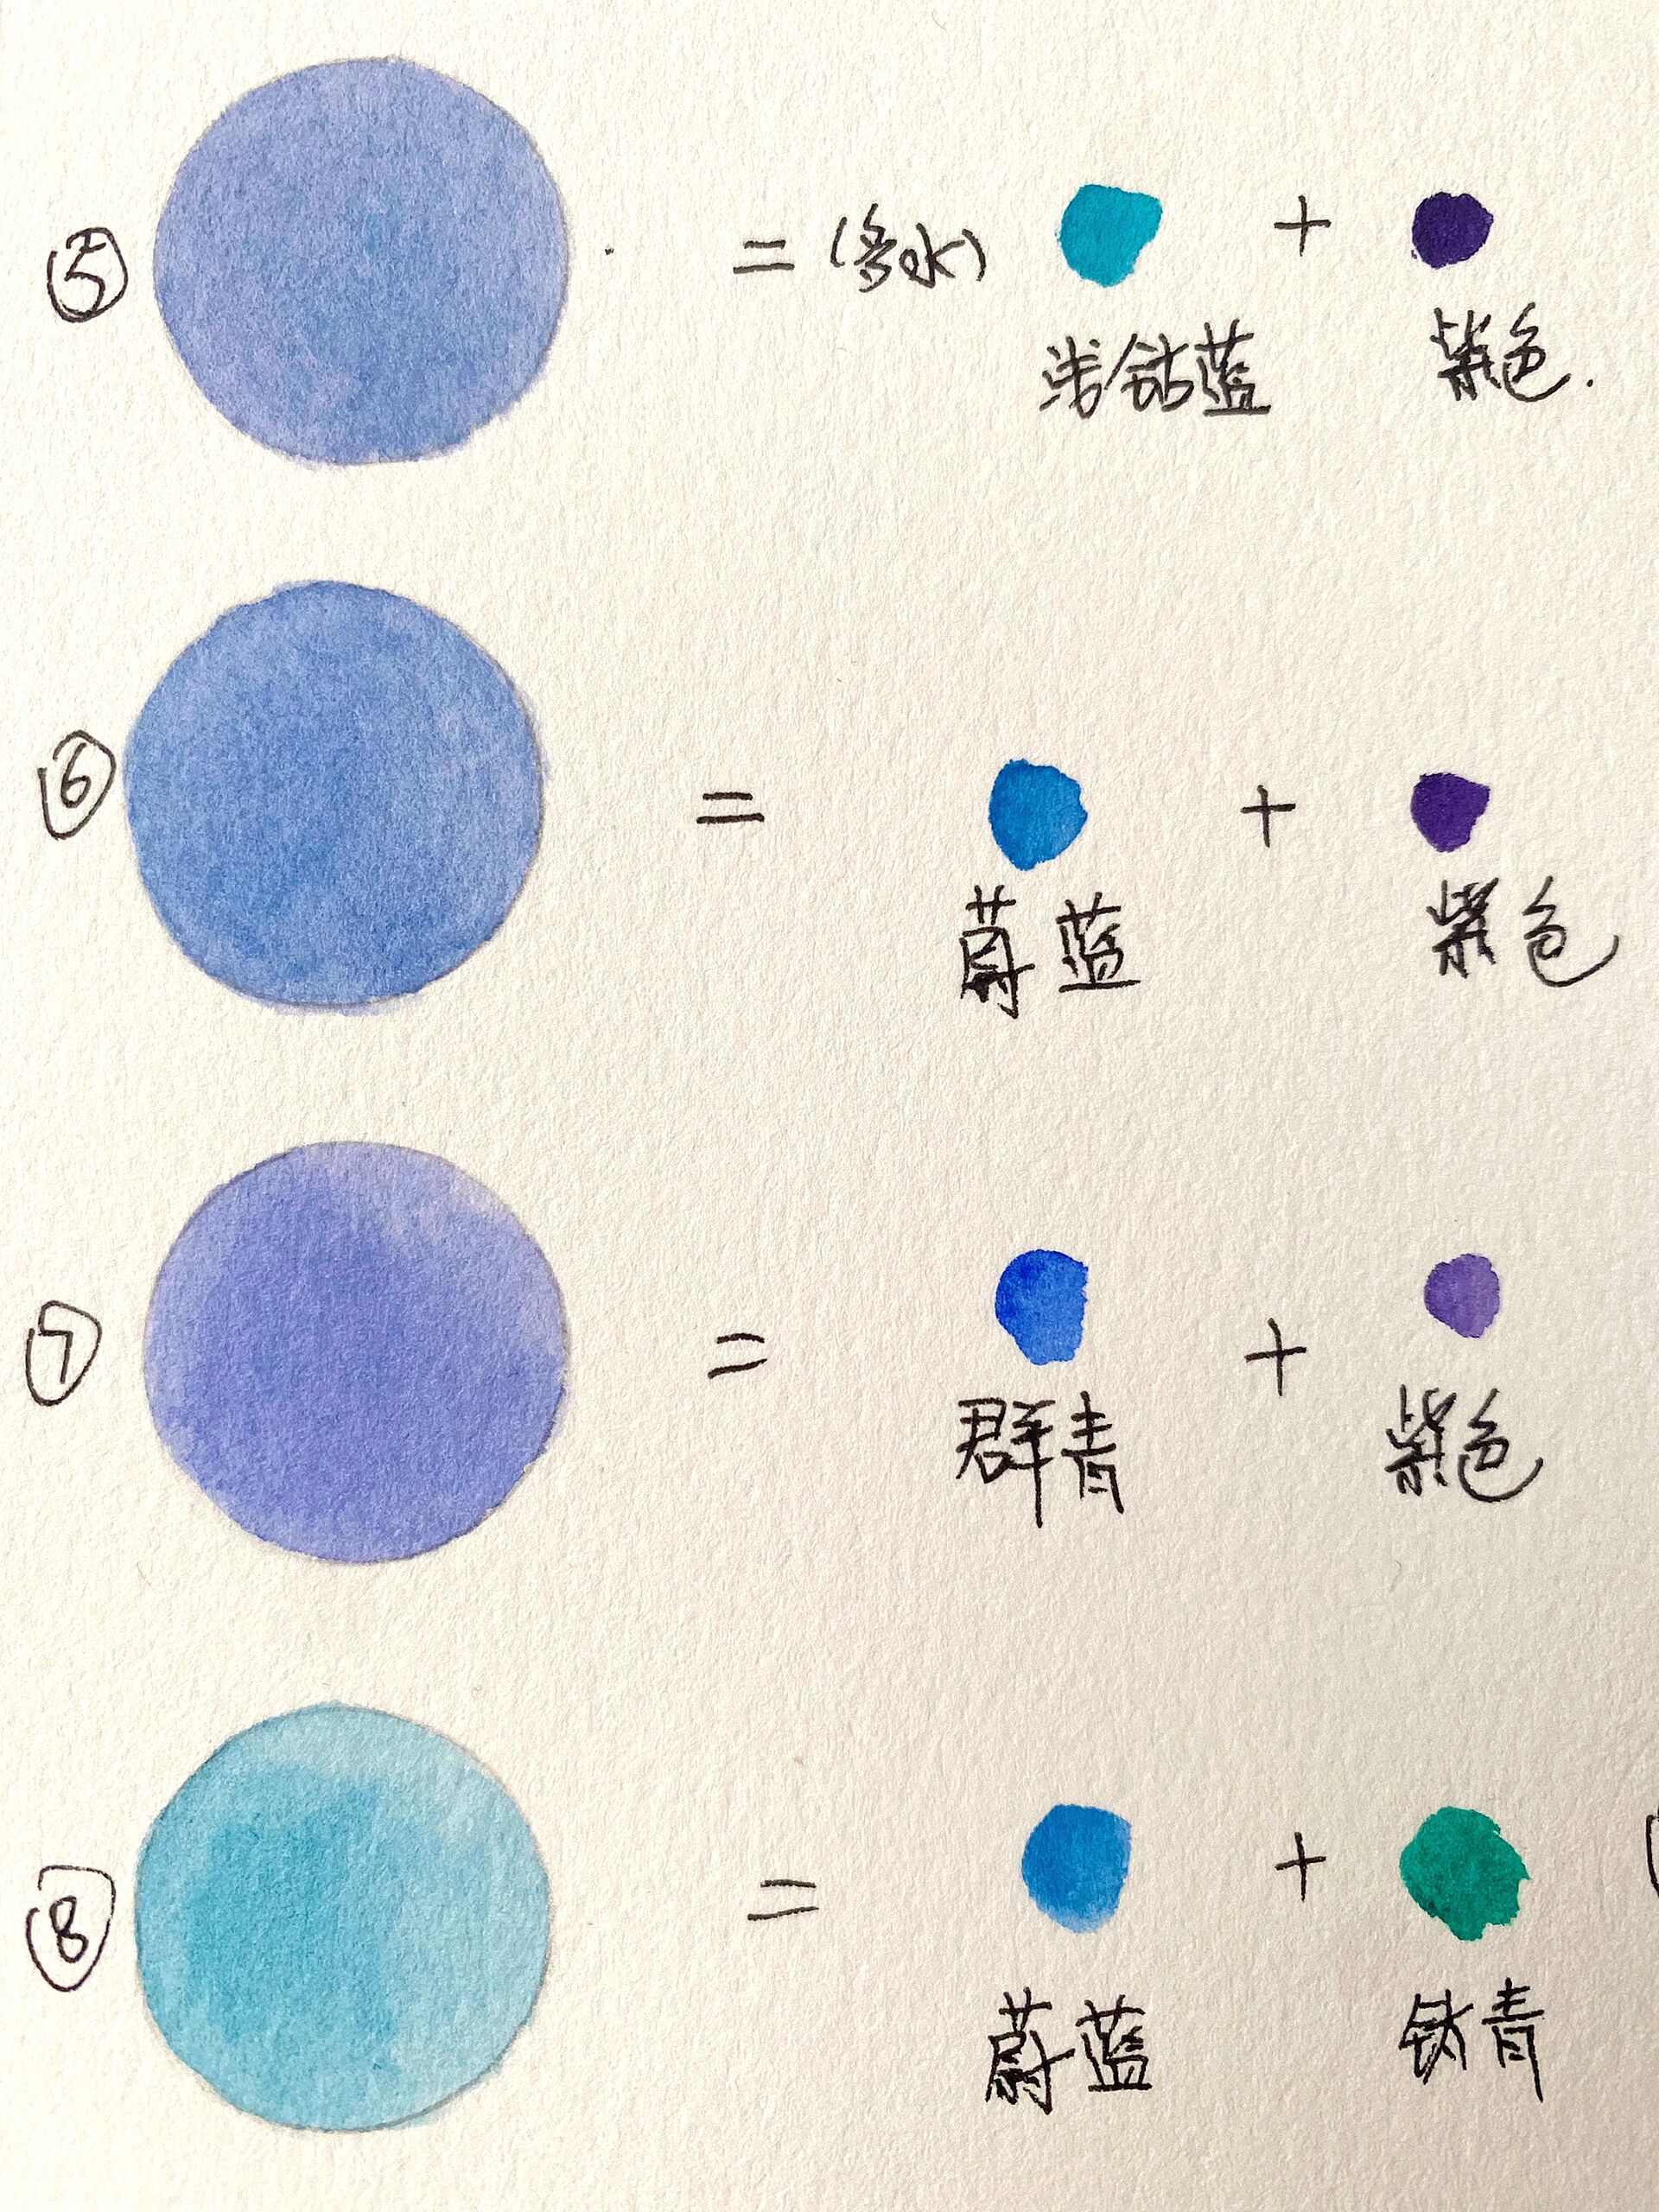 ⑤ = (多水) + 
浅钴蓝 紫色.
⑥ = +
蔚蓝 紫色
⑦ = +
群青 紫色
⑧ = +
蔚蓝 钛青